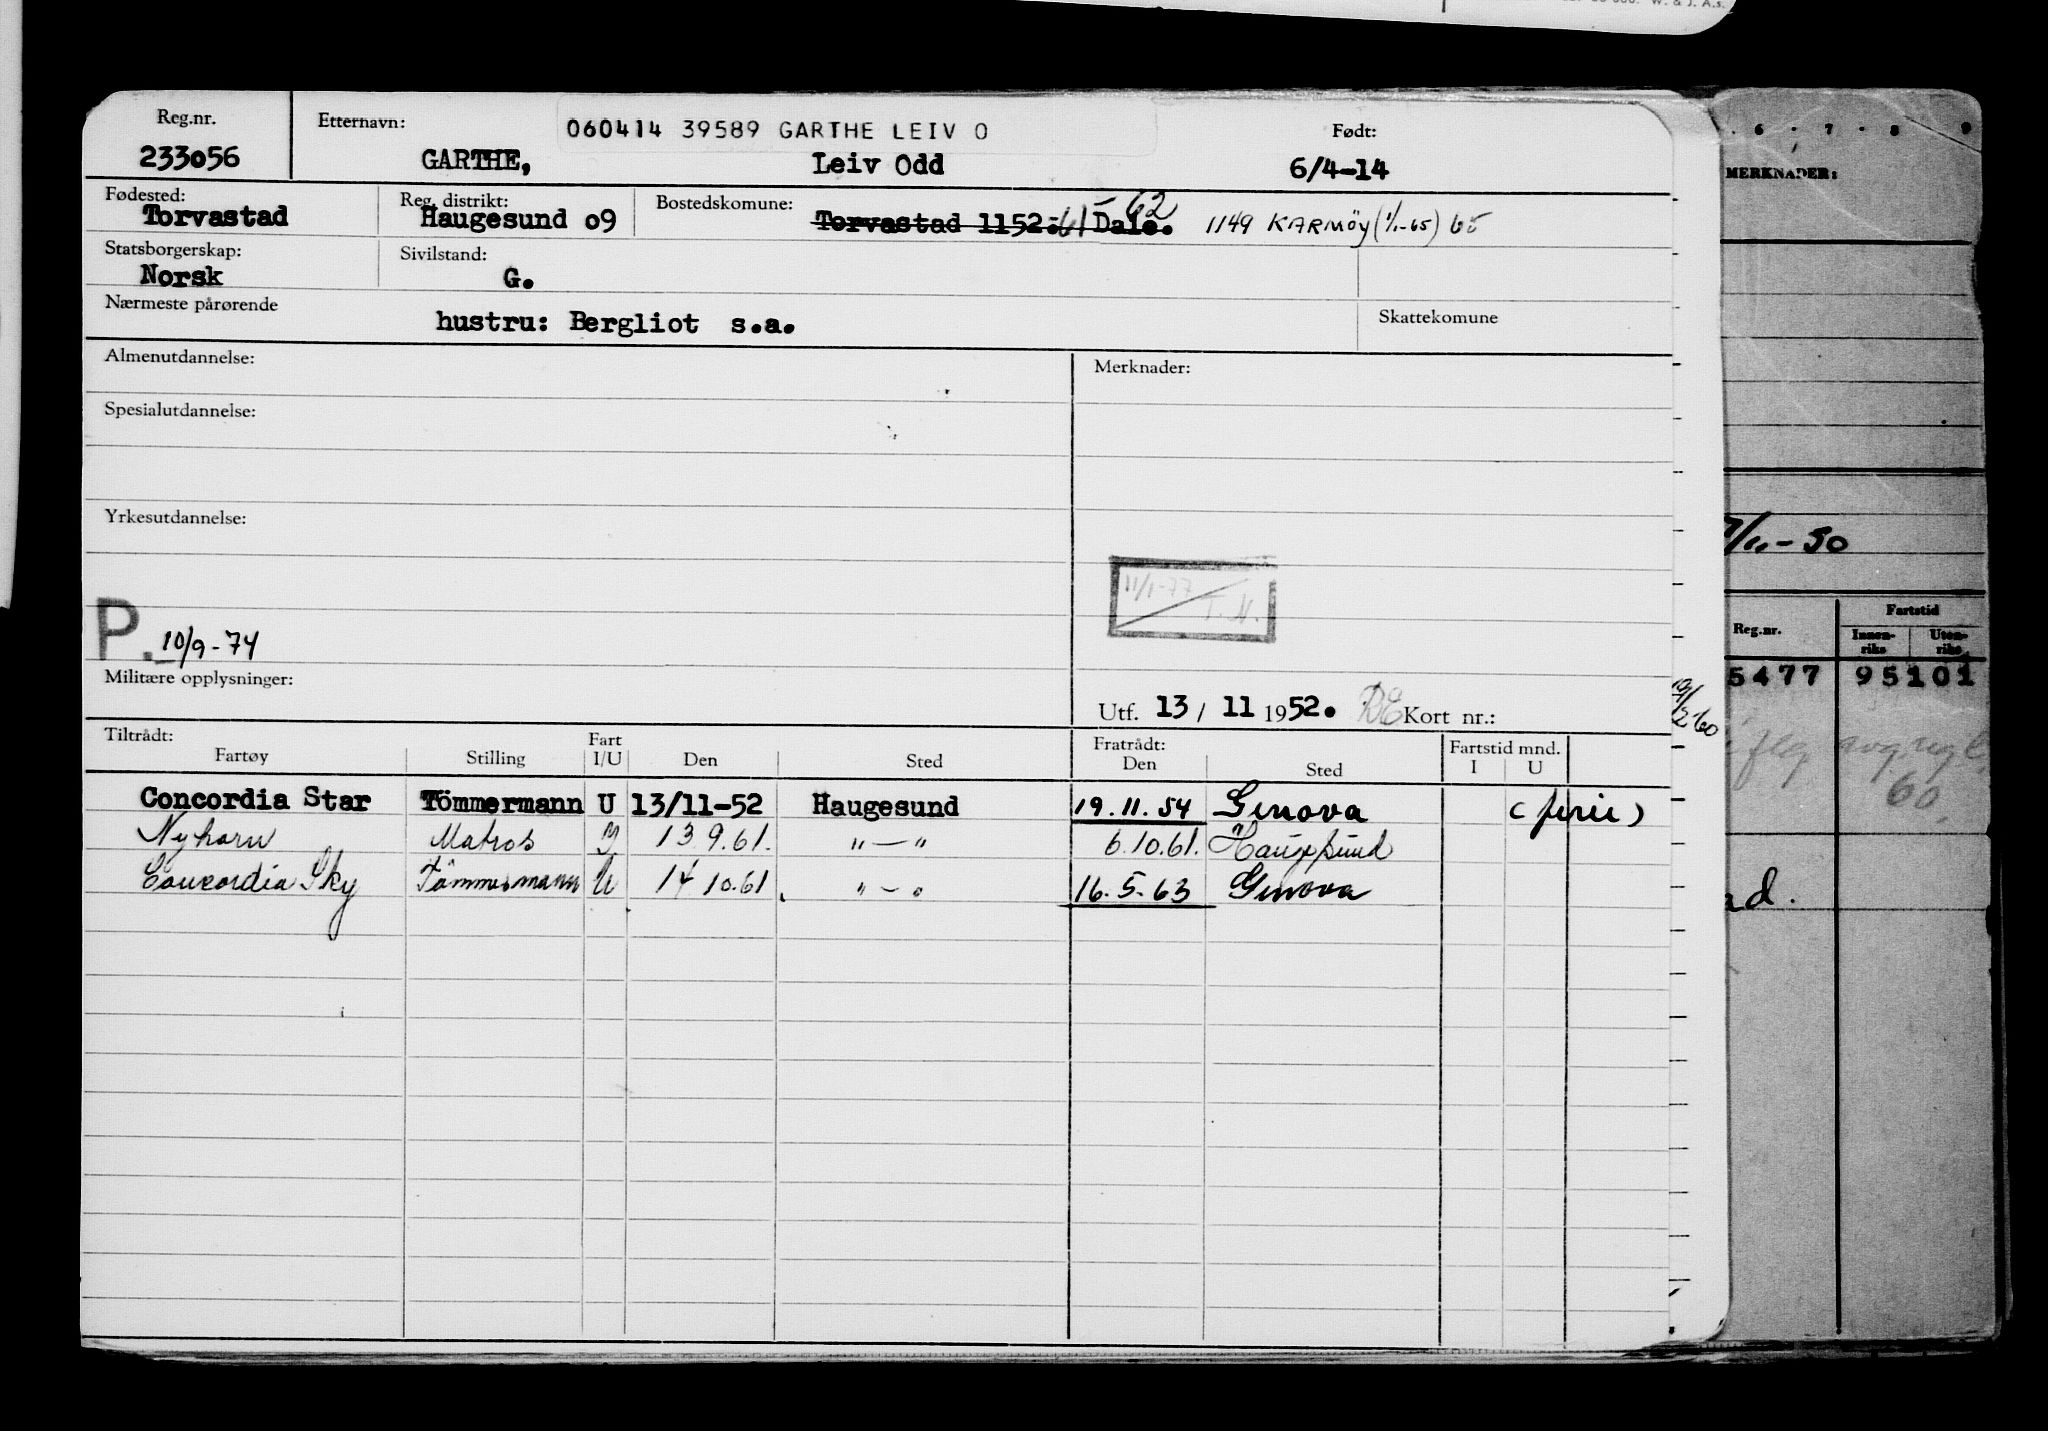 W. & J. A.s.
Reg.nr. Etternavn: 060414 39589 GARTHE LEIV O Født:
233056 GARTHE, Leiv Odd 6/4-14
Fødested: Reg. distrikt: Bostedskomune: -62
Torvastad Haugesund 09 Torvastad 1152.-61 Dale. 1149 KARMÖY (1/1-65) 65
Statsborgerskap: Sivilstand:
Norsk G.
Nærmeste pårørende Skattekomune
hustru: Bergliot s.a.
Almenutdannelse: Merknader:
Spesialutdannelse:
Yrkesutdannelse:
11/1-77
T. N.
P. 10/9-74
Militære opplysninger:
Utf. 13 / 11 1952. Kort nr.:
Tiltrådt: Fart Fratrådt: Fartstid mnd.
Fartøy Stilling I/U Den Sted Den Sted I U
Concordia Star Tömmermann U 13/11-52 Haugesund 19.11.54 Genova (ferie)
Nyhorn Matros 13 9.61. "—" 6.10.61. Haugesund
Concordia Sky Tömmermann U 14 10.61 "—" 16.5.63 Genova
6 7 8 9
MERKNADER:
/11-30
Fartstid
Reg.nr. Innen-riks Uten-riks
5477 95101
19/2-60
60
ad.